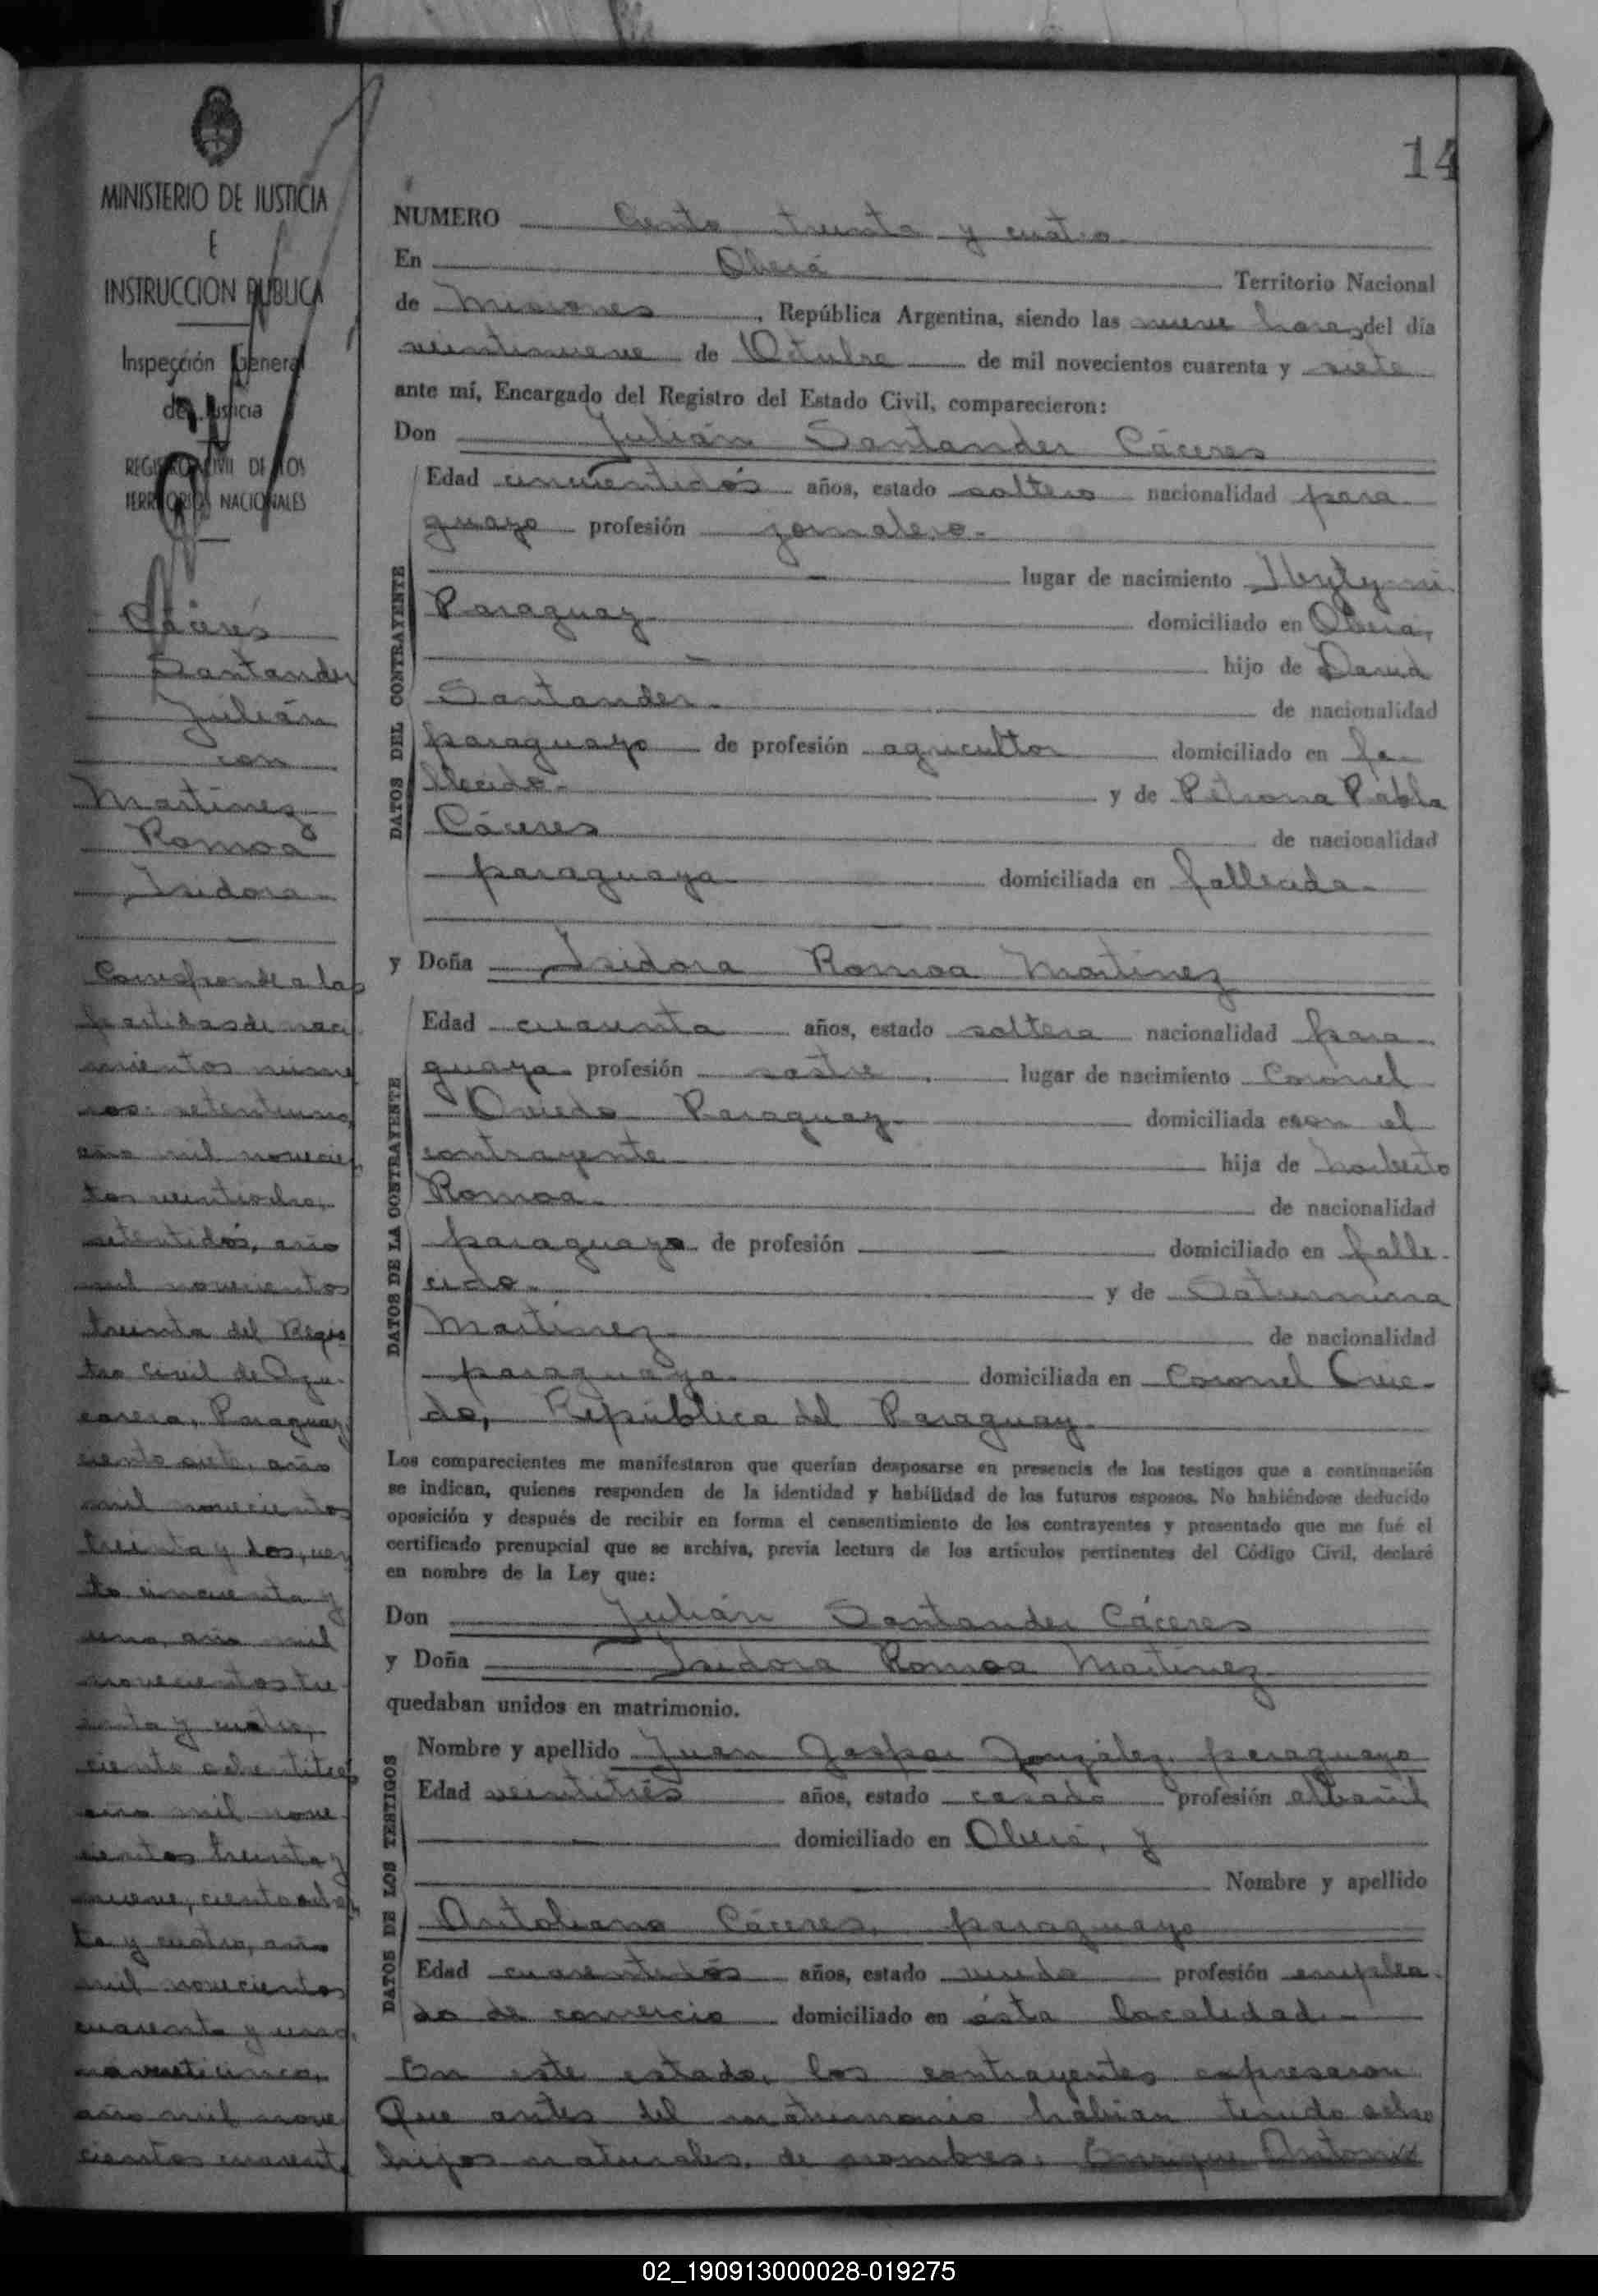 MINISTERIO DE JUSTICIA
E
INSTRUCCION PUBLICA
Inspección General
de Justicia
REGISTRO CIVIL DE LOS
TERRITORIOS NACIONALES
Cáceres
Santander
Julián
con
Martínez
Romoa
Isidora
Corresponde a las
partidas de naci
mientos núme
ros: setentiuno,
año mil novecien
tos veintiocho,
setentidós, año
mil novecientos
treinta del Regis
tro Civil de Azu-
carera, Paraguay
ciento siete, año
mil novecientos
treinta y dos,
to cincuenta y
uno, año mil
novecientos tre
inta y cuatro,
ciento ochentitres
año mil nove
cientos treinta y
nueve, ciento ochen
ta y cuatro, año
mil novecientos
cuarenta y uno,
año mil nove
cientos cuarent
14
NUMERO Ciento treinta y cuatro
En Oberá Territorio Nacional
de Misiones, República Argentina, siendo las nueve horas del día
veintinueve de Octubre de mil novecientos cuarenta y siete
ante mí, Encargado del Registro del Estado Civil, comparecieron:
Don Julián Santander Cáceres
Edad cincuentidós años, estado soltero nacionalidad para
guayo profesión jornalero-
lugar de nacimiento Ibytymi
Paraguay domiciliado en Oberá,
hijo de David
Santander- de nacionalidad
paraguayo de profesión agricultor domiciliado en fa-
llecido- y de Petrona Pabla
Cáceres de nacionalidad
paraguaya domiciliada en fallecida-
DATOS DEL CONTRAYENTE
y Doña Isidora Romoa Martínez
Edad cuarenta años, estado soltera nacionalidad para
guaya- profesión sastre lugar de nacimiento Coronel
Oviedo Paraguay- domiciliada con el
contrayente hija de Norberto
Romoa- de nacionalidad
paraguayo de profesión domiciliado en falle-
cido- y de Saturnina
Martínez- de nacionalidad
paraguaya domiciliada en Coronel Ovie-
do, República del Paraguay-
DATOS DE LA CONTRAYENTE
Los comparecientes me manifestaron que querían desposarse en presencia de los testigos que a continuación
se indican, quienes responden de la identidad y habilidad de los futuros esposos. No habiéndose deducido
oposición y después de recibir en forma el consentimiento de los contrayentes y presentado que me fué el
certificado prenupcial que se archiva, previa lectura de los artículos pertinentes del Código Civil, declaré
en nombre de la Ley que:
Don Julián Santander Cáceres
y Doña Isidora Romoa Martínez
quedaban unidos en matrimonio.
Nombre y apellido Juan Gaspar González, paraguayo
Edad veintitrés años, estado casado profesión albañil
domiciliado en Oberá, y
Nombre y apellido
Antoliano Cáceres, paraguayo
Edad cuarentidós años, estado viudo profesión emplea-
do de comercio domiciliado en ésta localidad.-
DATOS DE LOS TESTIGOS
En este estado, los contrayentes expresaron
Que antes del matrimonio habían tenido ocho
hijos naturales, de nombres: Enrique Antonio
02_190913000028-019275